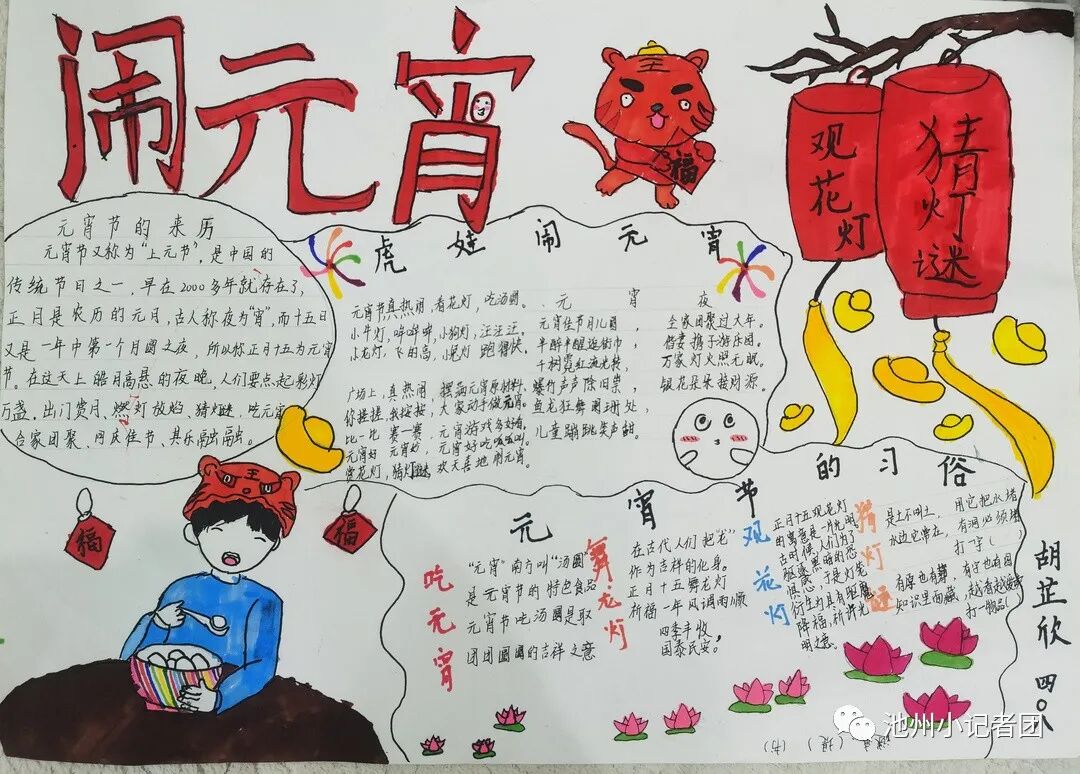 闹元宵
福
观花灯
猜灯谜
元宵节的来历
元宵节又称为“上元节”,是中国的
传统节日之一,早在2000多年就存在了,
正月是农历的元月,古人称夜为“宵”,而十五日
又是一年中第一个月圆之夜,所以称正月十五为元宵
节。在这天上皓月高悬的夜晚,人们要点起彩灯
万盏,出门赏月、燃灯放焰、猜灯谜、吃元宵
合家团聚、同庆佳节、其乐融融。
虎娃闹元宵
元宵节真热闹,看花灯,吃汤圆。
小牛灯,哞哞哞,小狗灯,汪汪汪。
小龙灯,飞的高,小兔灯,跑得快。
广场上,真热闹,摆满元宵原材料。
你搓搓,我按按,大家动手做元宵。
比一比,赛一赛,元宵游戏多好看。
元宵好,元宵好,元宵好吃呱呱叫。
赏花灯,猜灯谜,欢天喜地闹元宵。
元宵夜
元宵佳节月儿圆,全家团聚过大年。
半醉半醒逛街市,偕妻携子游乐园。
千树霓虹流光转,万家灯火照无眠。
爆竹声声除旧祟,银花朵朵接财源。
鱼龙狂舞闹珊处,
儿童蹦跳笑声甜。
福
福
元宵节的习俗
吃元宵
“元宵”南方叫“汤圆”
是元宵节的特色食品
元宵节吃汤圆是取
团团圆圆的吉祥之意
舞龙灯
在古代人们把“龙”
作为吉祥的化身。
正月十五舞龙灯
祈福一年风调雨顺
四季丰收
国泰民安。
观花灯
正月十五观花灯
的寓意是一片光明
古时候,人们为了
驱除黑暗的恐
惧感,于是灯笼
衍生为具有驱魔
降福,祈许光
明之意。
猜灯谜
是土不叫土,用它把水堵
水边它常在,有洞必须堵
打一字( )
有厚也有薄,有字也有图
知识里面藏,越看越
打一物品( )
胡芷欣 四0八
池州小记者团